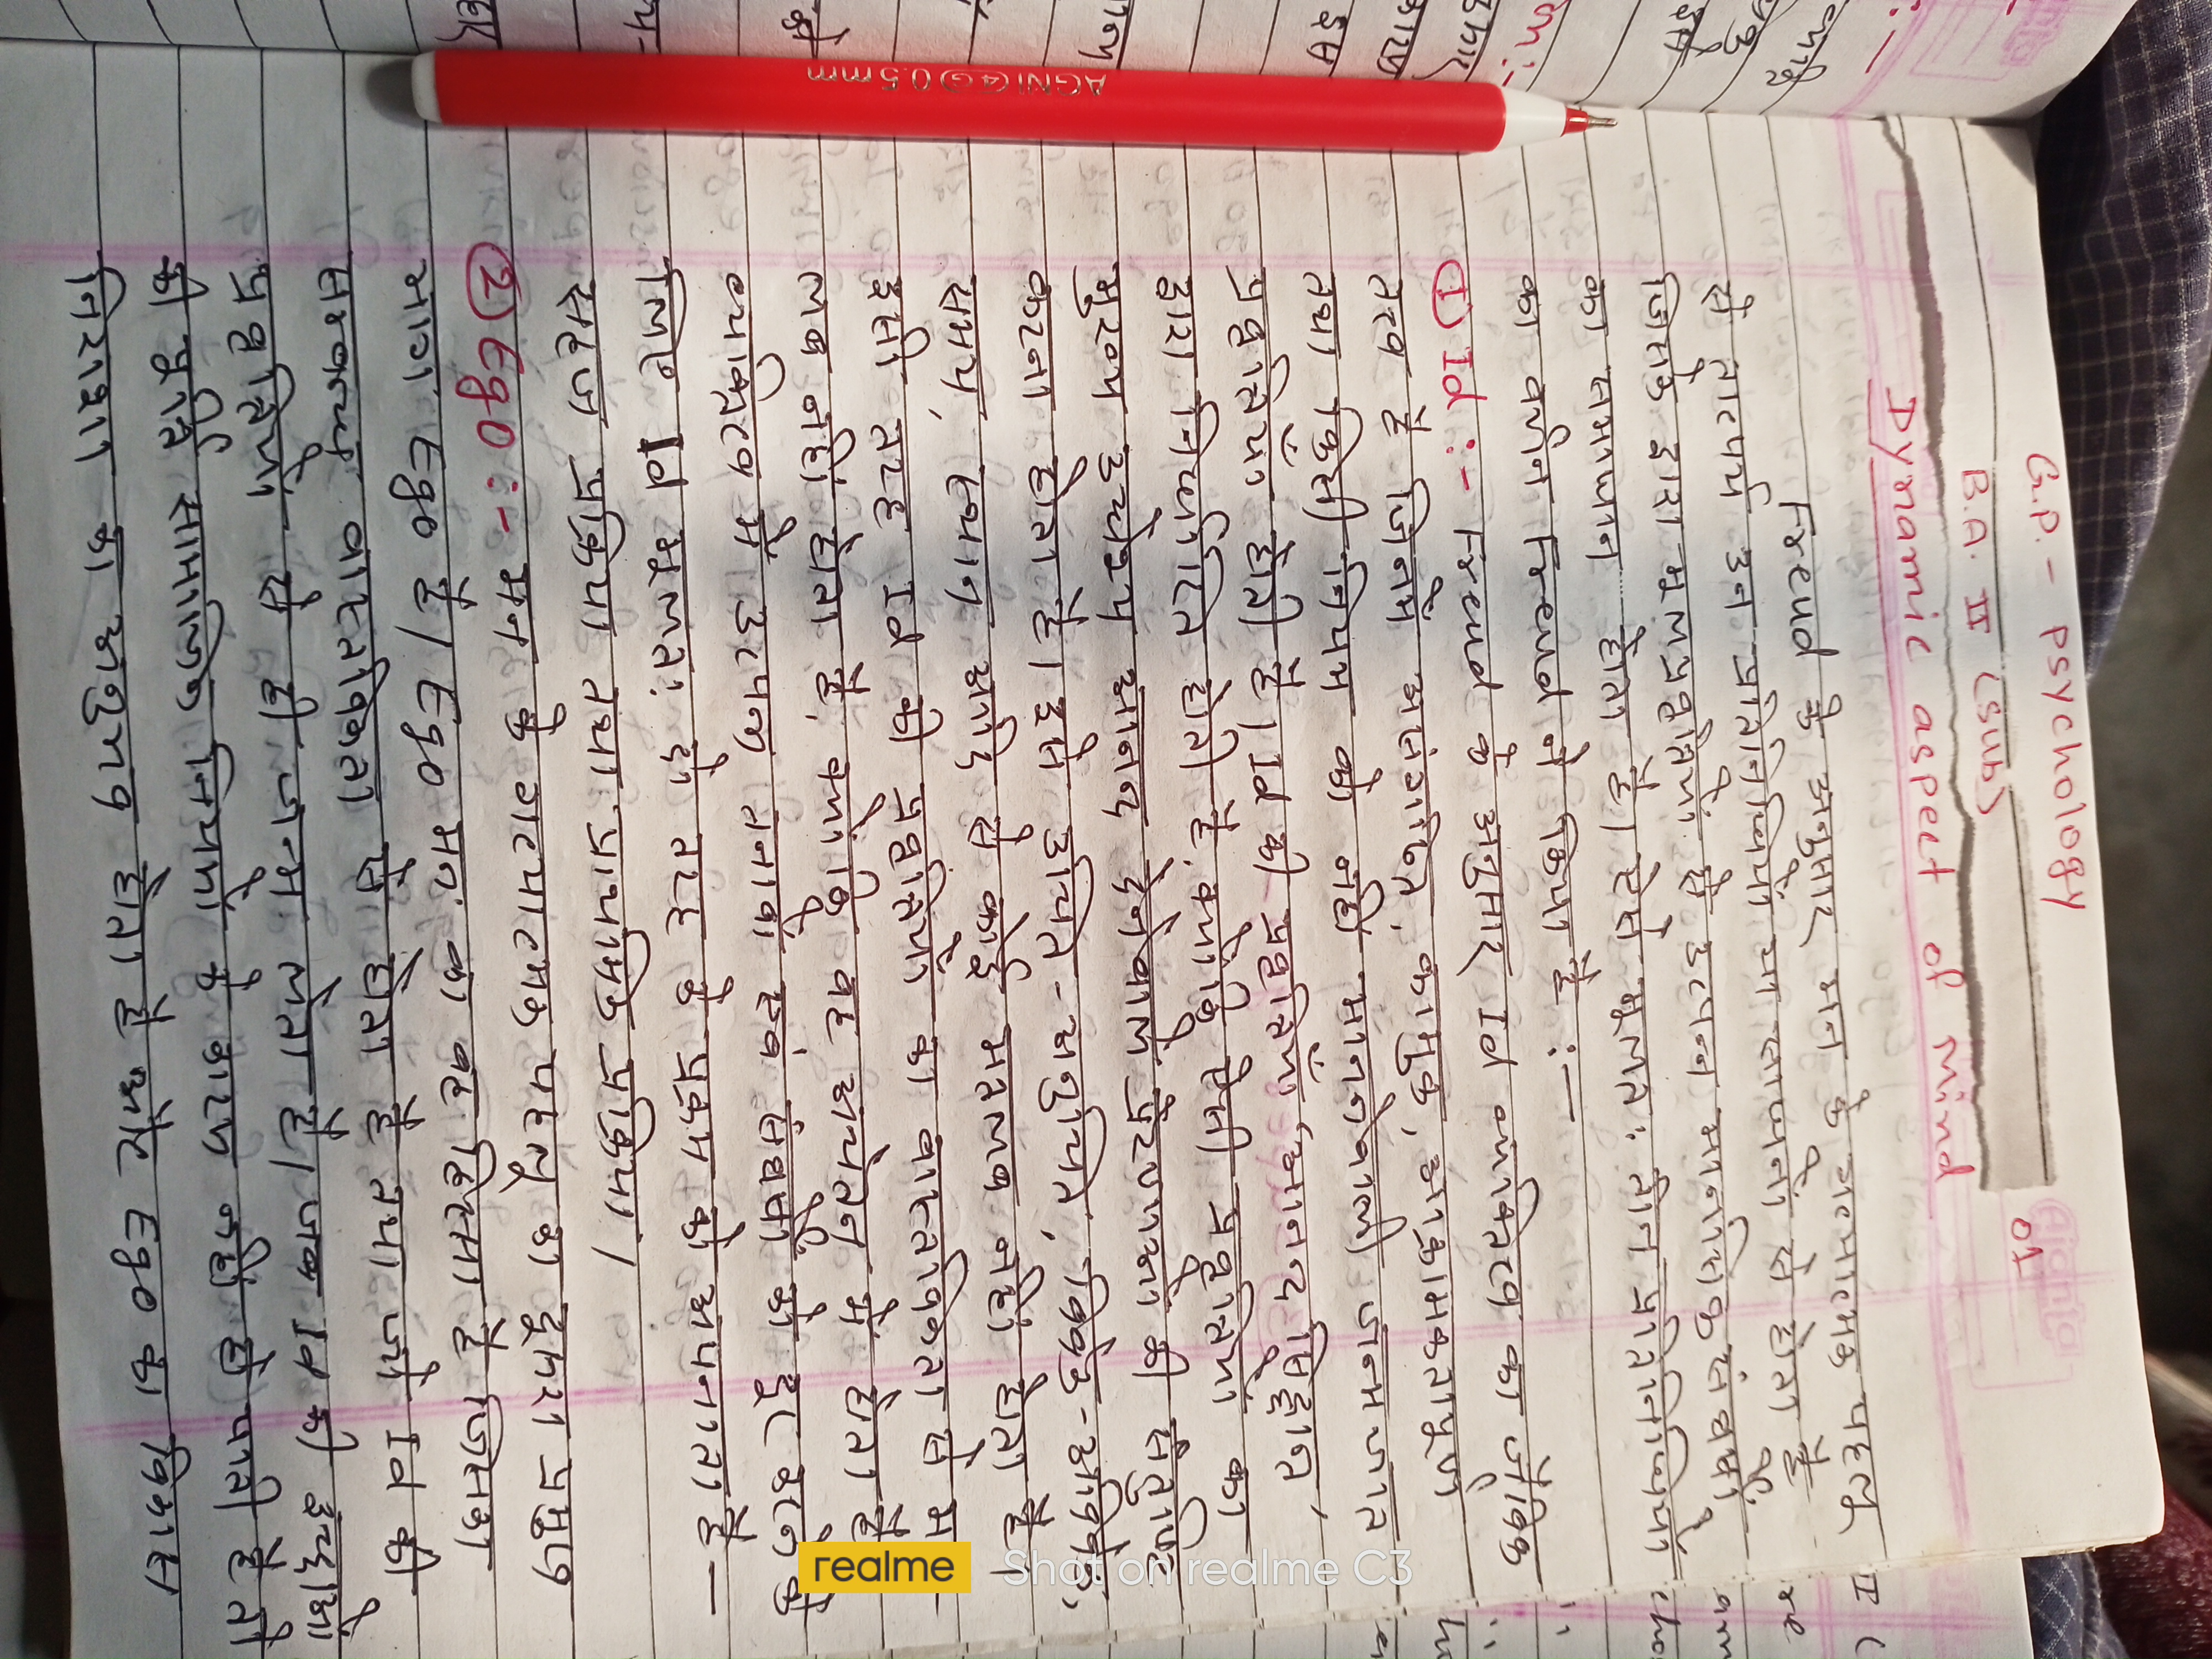 G.P. - Psychology
01
B.A. II (Sub)
Dynamic aspect of mind
Freud के अनुसार मन के गत्यात्मक पहलू
से तात्पर्य उन प्रतिनिधियों या साधनों से होता है
जिसके द्वारा मूलप्रवृत्तियों से उत्पन्न मानसिक संघर्षों
का समाधान होता है। ऐसे मूलतः तीन प्रतिनिधियों
का वर्णन Freud ने किया है :-
① Id :- Freud के अनुसार Id व्यक्तित्व का जैविक
तत्व है जिनमें असंगठित, कामुक, आक्रामकतापूर्ण
तथा किसी नियम को नहीं माननेवाली
प्रवृत्तियाँ होती है। Id की प्रवृत्तियाँ 'आनन्द सिद्धान्त'
द्वारा निर्धारित होती है, क्योंकि ऐसी प्रवृत्तियों का
मुख्य उद्देश्य आनन्द देनेवाले प्रेरणाओं की संतुष्टि
करना होता है। इसे उचित-अनुचित, विवेक-अविवेक,
समय, स्थान आदि से कोई मतलब नहीं होता है।
इसी तरह Id की प्रवृत्तियों का वास्तविकता से म-
तलब नहीं होता है, क्योंकि वह अचेतन में होता है
व्यक्तित्व में उत्पन्न तनावों एवं संघर्षों को दूर करने के
लिए Id मूलतः दो तरह के प्रक्रम को अपनाता है -
सहज प्रक्रिया तथा प्राथमिक प्रक्रिया।
② Ego :- मन के गत्यात्मक पहलू का दूसरा प्रमुख
भाग Ego है। Ego मन का वह हिस्सा है जिसका
सम्बन्ध वास्तविकता से होता है तथा जो Id की
प्रवृत्तियों से ही जन्म लेता है। जब Id की इच्छाओं
की पूर्ति सामाजिक नियमों के कारण नहीं हो पाती है तो
निराशा का अनुभव होता है और Ego का विकास
AGNI 4G 0.5mm
realme
Shot on realme C3